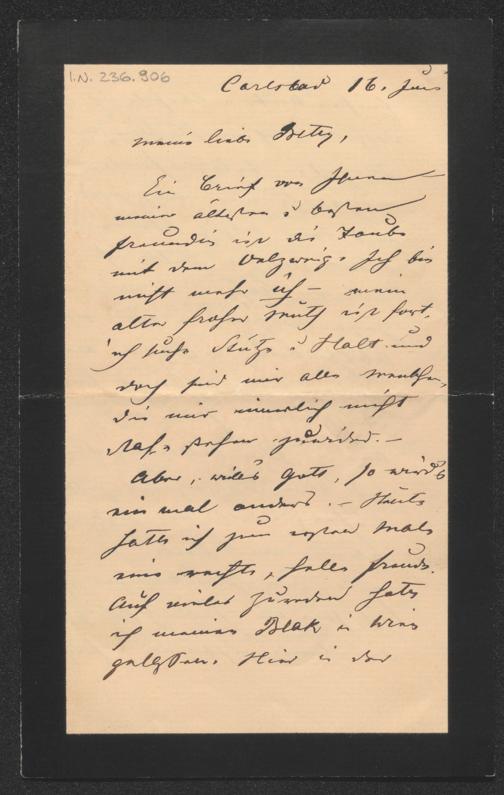 I.N. 236.906
Carlsbad 16. Juni
meine liebe Betty,
Ein Brief von Ihnen
meiner ältesten u besten
Freundin ist die Taube
mit dem Oelzweig. Ich bin
nicht mehr ich – mein
alter froher Muth ist fort.
ich suche Stütze u Halt und
doch sind mir alle Menschen,
die mir innerlich nicht
nahe stehen zuwider. –
Aber, will's Gott, so wird's
ein mal anders. – Heute
hatte ich zum ersten Male
eine rechte, helle Freude.
Auf vieles Zureden hatte
ich meinen Blak in Wien
gelassen. Hier in der